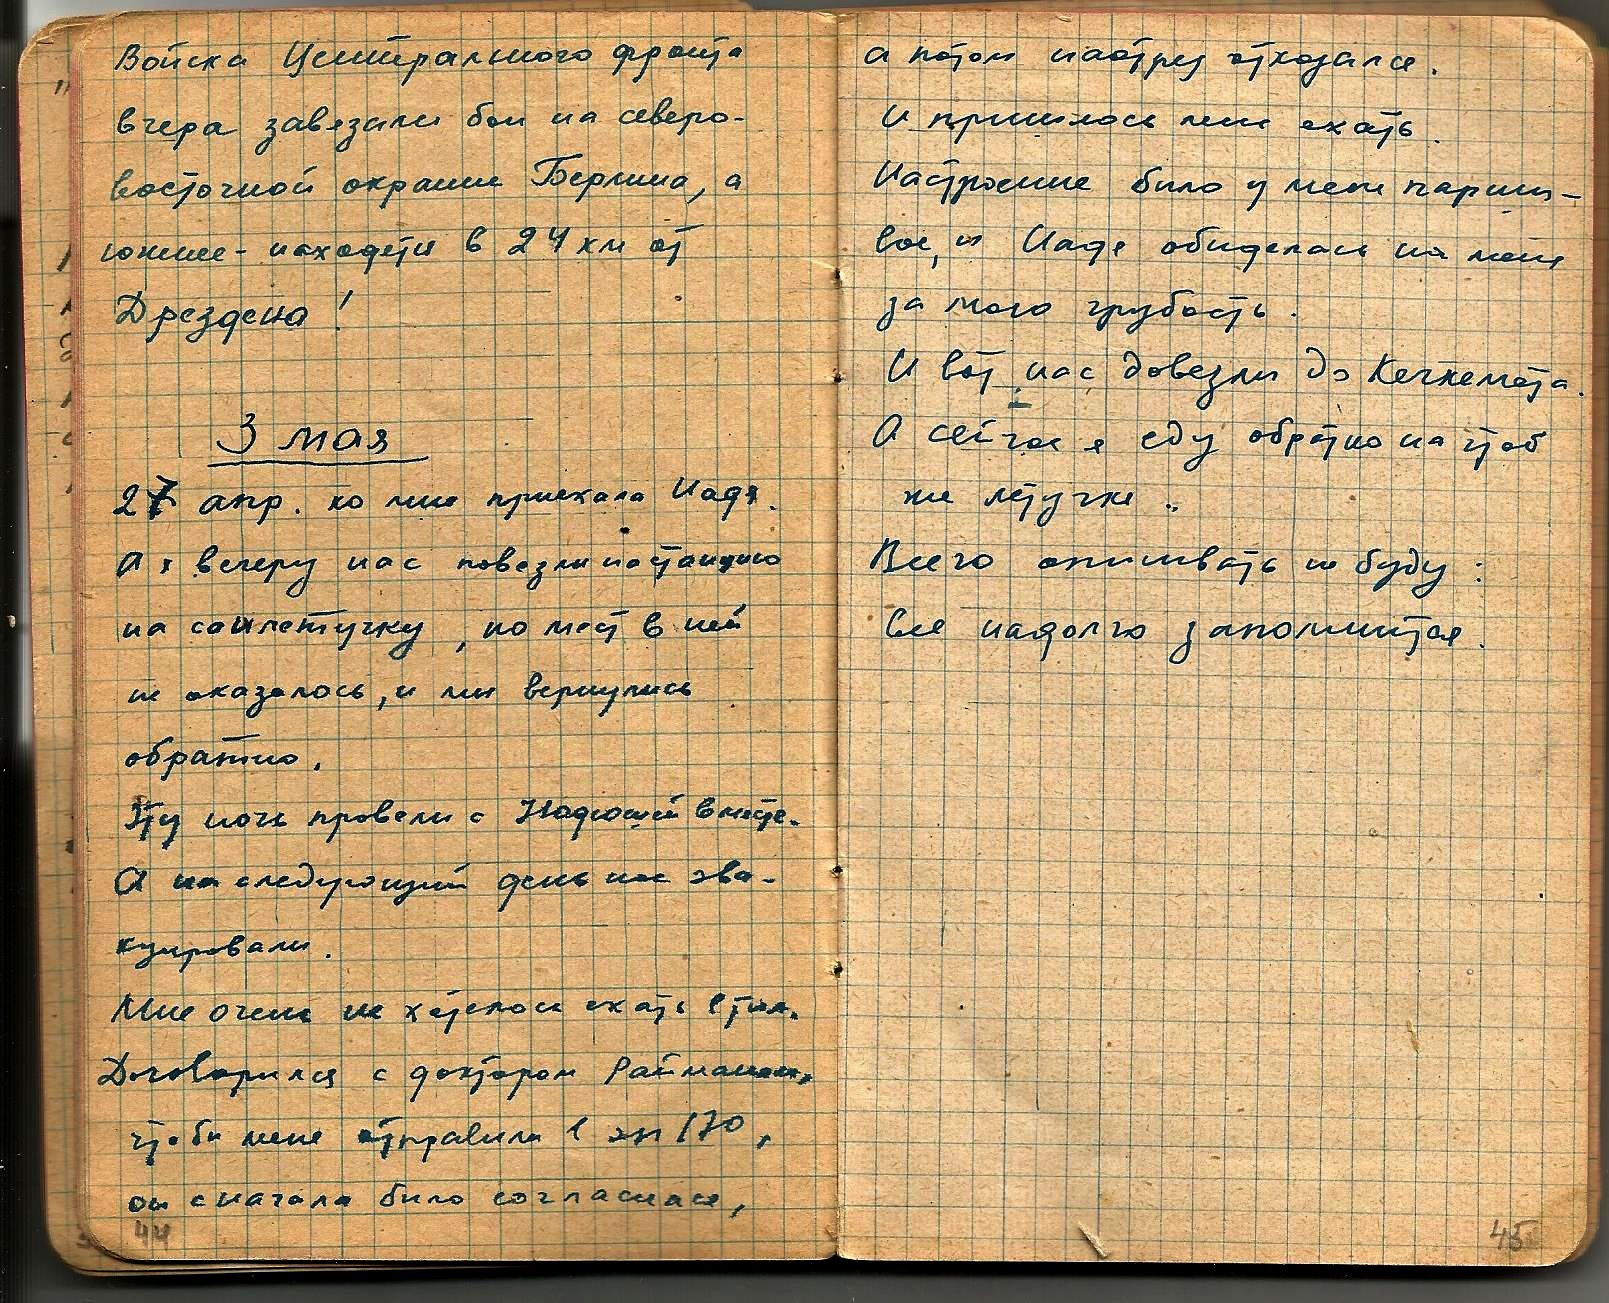 Войска Центрального фронта
вчера завязали бои на северо-
восточной окраине Берлина, а
южнее - находятся в 24 км от
Дрездена!
3 мая
27 апр. ко мне приехала Надя.
А к вечеру нас повезли на станцию
на санлетучку, но мест в ней
не оказалось, и мы вернулись
обратно.
Эту ночь провели с Надюшей вместе.
А на следующий день нас эва-
куировали.
Мне очень не хотелось ехать в тыл.
Договорился с доктором Райманом,
чтобы меня отправили в эп 170,
он сначала было согласился,
44
а потом наотрез отказался.
И пришлось мне ехать.
Настроение было у меня парши-
вое, и Надя обиделась на меня
за мою грубость.
И вот нас довезли до Кечкемета.
А сейчас я еду обратно на этой
же летучке..
Всего описывать не буду:
все надолго запомнится.
45